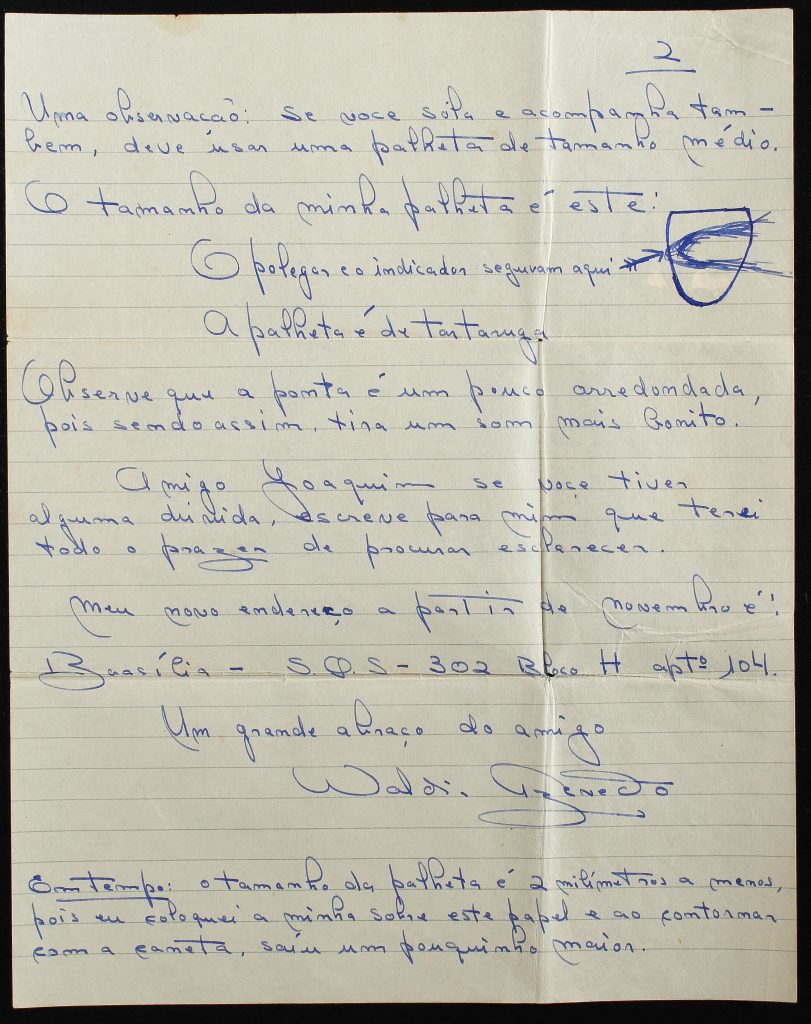 2
Uma observacaõ: se voce sóla e acompanha tam-
bem, deve usar uma palheta de tamanho médio.
O tamanho da minha palheta é este:
O polegar e o indicador seguram aqui
A palheta é de tartaruga
Observe que a ponta é um pouco arredondada,
pois sendo assim, tira um som mais bonito.
Amigo Joaquim se voçe tiver
alguma dúvida, escreve para mim que terei
todo o prazer de procurar esclarecer.
Meu novo endereço a partir de novembro é:
Brasília - S.Q.S - 302 Bloco H aptº 104.
Um grande abraço do amigo
Waldir Azevedo
Em tempo: o tamanho da palheta é 2 milímetros a menos,
pois eu coloquei a minha sobre este papel e ao contornar
com a caneta, saíu um pouquinho maior.